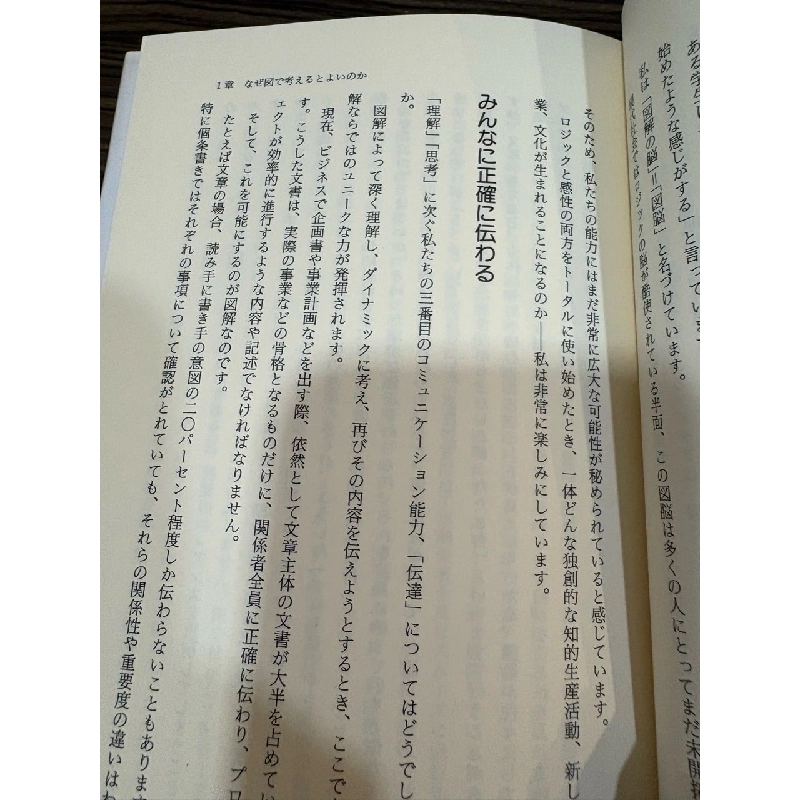 ある学生は、
始めたような感じがする」と言っています
私は「図解の脳」＝「図脳」と名づけています。
ロジックの脳が酷使されている半面、この図脳は多くの人にとってまだ未開拓
1章　なぜ図で考えるとよいのか
そのため、私たちの能力にはまだ非常に広大な可能性が秘められていると感じています。
ロジックと感性の両方をトータルに使い始めたとき、一体どんな独創的な知的生産活動、新し
業、文化が生まれることになるのか――私は非常に楽しみにしています。
みんなに正確に伝わる
「理解」「思考」に次ぐ私たちの三番目のコミュニケーション能力、「伝達」についてはどうでし
か。
図解によって深く理解し、ダイナミックに考え、再びその内容を伝えようとするとき、ここで
解ならではのユニークな力が発揮されます。
現在、ビジネスで企画書や事業計画などを出す際、依然として文章主体の文書が大半を占めてい
す。こうした文書は、実際の事業などの骨格となるものだけに、関係者全員に正確に伝わり、プロ
ェクトが効率的に進行するような内容や記述でなければなりません。
そして、これを可能にするのが図解なのです。
たとえば文章の場合、読み手に書き手の意図の二〇パーセント程度しか伝わらないこともあります
特に個条書きではそれぞれの事項について確認がとれていても、それらの関係性や重要度の違いはわ